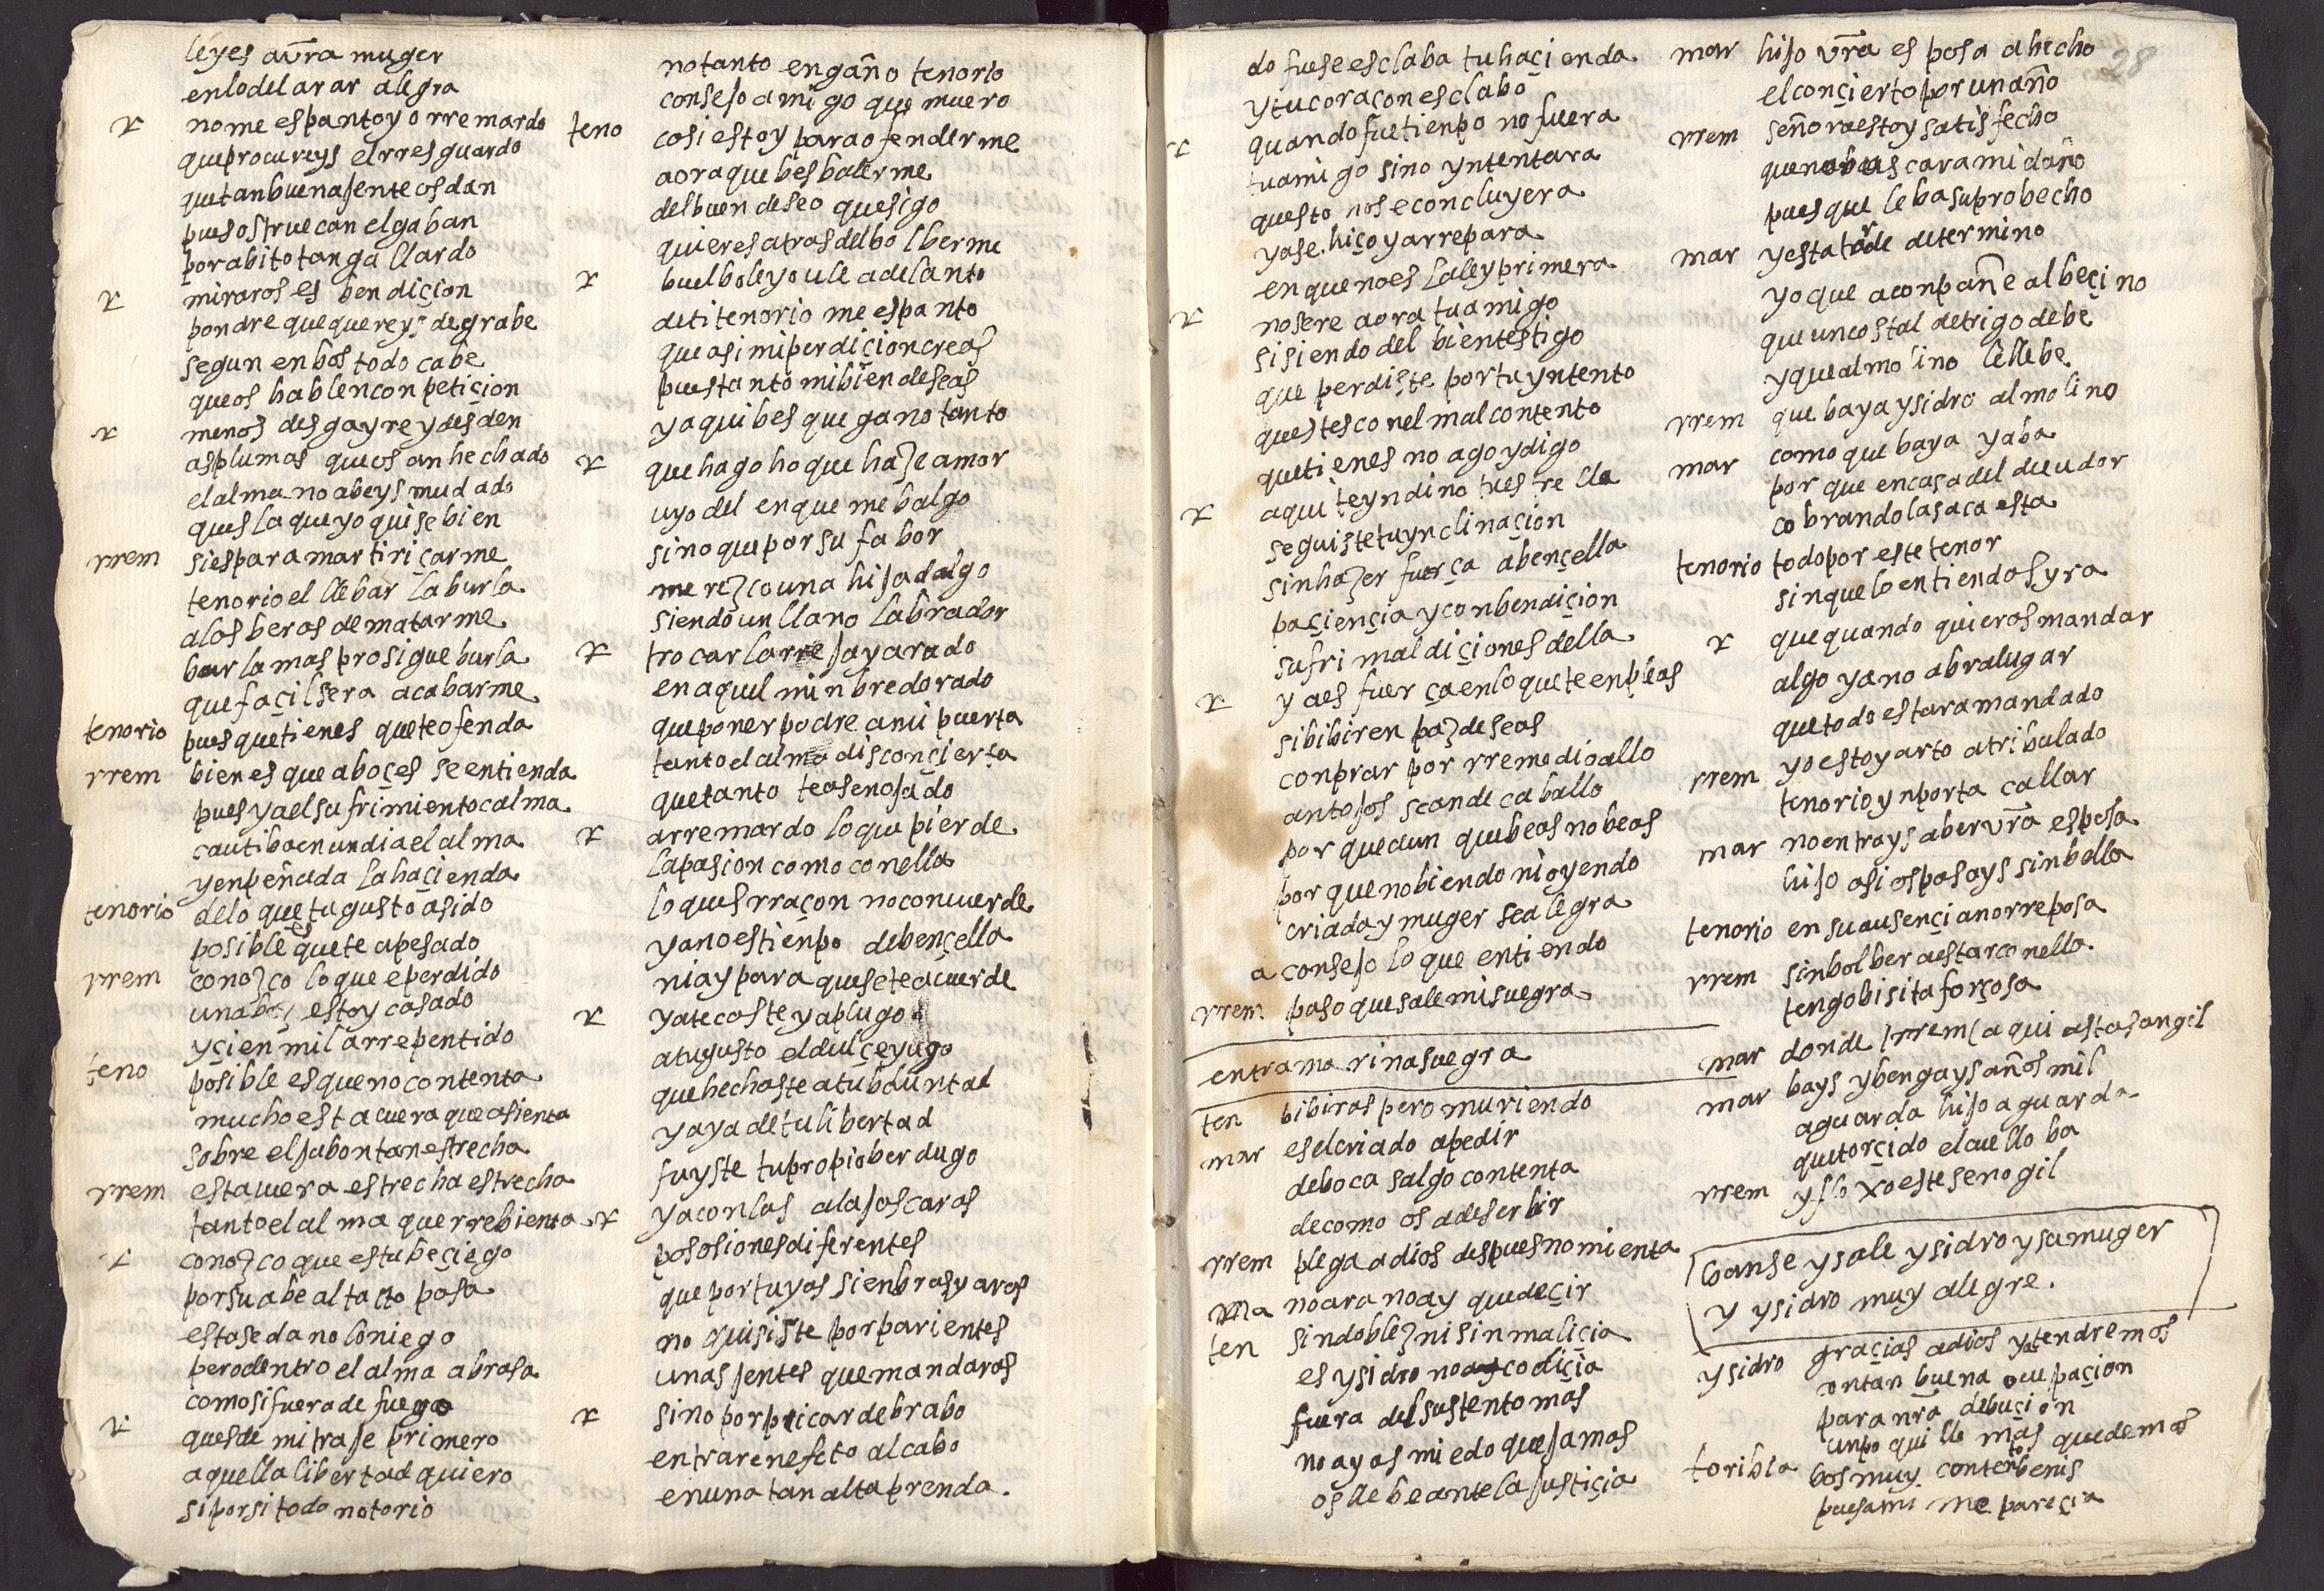 leyes a vra muger
en lo del arar alegra
r no me espanto yo rremardo
que procureys el rresguardo
que tan buena jente os dan
pues os truecan el gaban
por abito tan gallardo
r miraros es bendiçion
pondre que quereys de grabe
segun en bos todo cabe
que os hablen con petiçion
r menos desgayre y desden
as plumas que os an hechado
el alma no abeys mudado
ques la que yo quise bien
rrem si es para martiriçarme
tenorio el llebar la burla
a las beras de matarme
burla mas prosigue burla
que façil sera acabarme
tenorio pues que tienes que te ofenda
rrem bien es que a boçes se entienda
pues ya el sufrimiento calma
cautiba en un dia el alma
y enpeñada la haçienda
tenorio de lo que tu gusto a sido
posible es que te a pesado
rrem conozco lo que e perdido
una bez estoy casado
y çien mil arrepentido
teno posible es que no contenta
mucho esta cuera que asienta
sobre el jubon tan estrecha
rrem esta cuera estrecha estrecha
tanto el alma que rrebienta
r conozco que estube çiego
por suabe al tacto pasa
esta seda no lo niego
pero dentro el alma abrasa
como si fuera de fuego
r ques de mi traje primero
aquella libertad quiero
si por si todo notorio
no tanto engaño tenorio
consejo amigo que muero
teno cosi estoy para ofenderme
aora que bes balerme
del buen deseo que sigo
quieres atras del bolberme
r buelbole yo u le adelanto
de ti tenorio me espanto
que asi mi perdiçion creas
pues tanto mi bien deseas
y aqui bes que gano tanto
r que hago ho que haze amor
uyo del en que me balgo
sino que por su fabor
merezco una hija dalgo
siendo un llano labrador
r trocar la rreja y arado
en aquel minbre dorado
que poner podre a mi puerta
tanto el alma disconçierta
que tanto te as enojado
r a rremardo lo que pierde
la pasion como con ella
lo ques rraçon no concuerde
ya no es tienpo de bençella
ni ay para que se te acuerde
r ya te caste ya plugo
a tu gusto el dulçe yugo
que hechaste a tu boluntad
y aya de tu libertad
fuyste tu propio berdugo
r ya con las alajas caras
posesiones diferentes
que por tuyas sienbras y aras
no quisiste por parientes
unas jentes que mandaras
r sino por picar de brabo
entrar en efeto al cabo
en una tan alta prenda.
28
do fuese esclaba tu haçienda
y tu coraçon esclabo
r quando fue tienpo no fuera
tu amigo sino yntentara
questo no se concluyera
ya se hiço y a rrepara
en que no es la ley primera
r no sere aora tu amigo
si siendo del bien testigo
que perdiste por tu yntento
questes con el mal contento
que tienes no ago y digo
r aqui te yndino tu estrella
seguiste tu ynclinaçion
sin hazer fuerça a bençella
paçiençia y con bendiçion
sufri maldiçiones della
r y a es fuerça en lo que te enpleas
si bibir en paz deseas
conprar por rremedio allo
antojos sean de caballo
por que aun que beas no beas
por que no biendo ni oyendo
criada y muger se alegra
aconsejo lo que entiendo
rrem paso que sale mi suegra
entra marina suegra
ten bibiras pero muriendo
mar es el criado a pedir
de boca salgo contenta
de como os a de serbir
rrem plega a dios despues no mienta
ma no ara no ay que deçir
ten sin doblez ni sin maliçia
es ysidro no ay codiçia
fuera del sustento mas
no ayas miedo que jamas
os llebe ante la justiçia
mar hijo vra esposa a hecho
el conçierto por un año
rrem señora estoy satisfecho
que no buscara mi daño
pues que le ba su probecho
mar y esta tarde determino
yo que aconpañe al beçino
que un costal de trigo debe
y que al molino le llebe
rrem que baya ysidro al molino
mar como que baya ya ba
por que en casa del deudor
cobrando la saca esta
tenorio todo por este tenor
sin que lo entiendas yra
r que quando quieras mandar
algo ya no abra lugar
que todo estara mandado
rrem yo estoy arto atribulado
tenorio ynporta callar
mar no entrays a ber vra esposa
hijo asi os pasays sin bella
tenorio en su ausençia no rreposa
rrem sin bolber a estar con ella
tengo bisita forçosa
mar donde rrem aqui asta sangil
mar bays y bengays años mil
aguarda hijo aguarda
que torçido el cuello ba
rrem y floxo este senogil
banse y sale ysidro y su muger
y ysidro muy alegre.
ysidro graçias a dios ya tendremos
en tan buena ocupaçion
para nra debuçion
un poquillo mas quedemos
toribia bos muy contento benis
pues a mi me pareçia